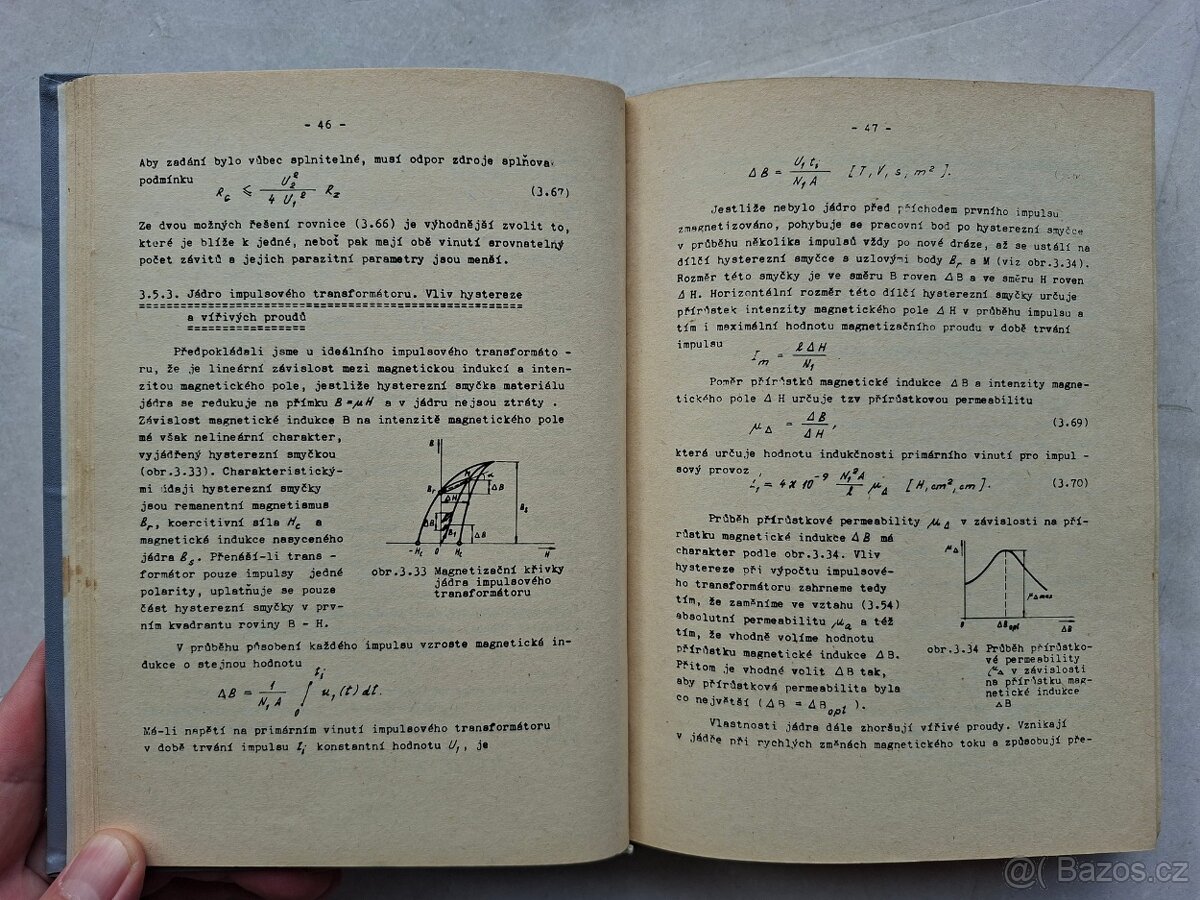 - 46 -
Aby zadání bylo vůbec splnitelné, musí odpor zdroje splňova
podmínku
R_G ≤ U_2^2 / 4 U_1^2 R_z (3.67)
Ze dvou možných řešení rovnice (3.66) je výhodnější zvolit to,
které je blíže k jedné, neboť pak mají obě vinutí srovnatelný
počet závitů a jejich parazitní parametry jsou menší.
3.5.3. Jádro impulsového transformátoru. Vliv hystereze
a vířivých proudů
Předpokládali jsme u ideálního impulsového transformáto -
ru, že je lineární závislost mezi magnetickou indukcí a inten-
zitou magnetického pole, jestliže hysterezní smyčka materiálu
jádra se redukuje na přímku B=μH a v jádru nejsou ztráty .
Závislost magnetické indukce B na intenzitě magnetického pole
má však nelineární charakter,
vyjádřený hysterezní smyčkou
(obr.3.33). Charakteristický-
mi údaji hysterezní smyčky
jsou remanentní magnetismus
B_r, koercitivní síla H_c a
magnetická indukce nasyceného
jádra B_s. Přenáší-li trans -
formátor pouze impulsy jedné
polarity, uplatňuje se pouze
část hysterezní smyčky v prv-
ním kvadrantu roviny B - H.
B
B_r
M
α
ΔH
ΔB
B_s
ΔB
B_1
ΔB
-H_c
0
H_c
H
obr.3.33 Magnetizační křivky
jádra impulsového
transformátoru
V průběhu působení každého impulsu vzroste magnetická in-
dukce o stejnou hodnotu
ΔB = 1 / N_1 A ∫_0^{t_i} u_1(t) dt.
Má-li napětí na primárním vinutí impulsového transformátoru
v době trvání impulsu t_i konstantní hodnotu U_1, je
- 47 -
ΔB = U_1 t_i / N_1 A [T, V, s, m²].
Jestliže nebylo jádro před příchodem prvního impulsu
zmagnetizováno, pohybuje se pracovní bod po hysterezní smyčce
v průběhu několika impulsů vždy po nové dráze, až se ustálí na
dílčí hysterezní smyčce s uzlovými body B_r a M (viz obr.3.34).
Rozměr této smyčky je ve směru B roven ΔB a ve směru H roven
ΔH. Horizontální rozměr této dílčí hysterezní smyčky určuje
přírůstek intenzity magnetického pole ΔH v průběhu impulsu a
tím i maximální hodnotu magnetizačního proudu v době trvání
impulsu
I_m = ℓ ΔH / N_1
Poměr přírůstků magnetické indukce ΔB a intenzity magne-
tického pole ΔH určuje tzv přírůstkovou permeabilitu
μ_Δ = ΔB / ΔH , (3.69)
která určuje hodnotu indukčnosti primárního vinutí pro impul -
sový provoz
L_1 = 4π 10^-9 N_1^2 A / ℓ μ_Δ [H, cm², cm]. (3.70)
Průběh přírůstkové permeability μ_Δ v závislosti na pří-
růstku magnetické indukce ΔB má
charakter podle obr.3.34. Vliv
hystereze při výpočtu impulsové-
ho transformátoru zahrneme tedy
tím, že zaměníme ve vztahu (3.54)
absolutní permeabilitu μ_a a též
tím, že vhodně volíme hodnotu
přírůstku magnetické indukce ΔB.
Přitom je vhodné volit ΔB tak,
aby přírůstková permeabilita byla
co největší (ΔB = ΔB_opt ).
μ_Δ
μ_Δmax
0
ΔB_opt
ΔB
obr.3.34 Průběh přírůstko-
vé permeability
μ_Δ v závislosti
na přírůstku mag-
netické indukce
ΔB
Vlastnosti jádra dále zhoršují vířivé proudy. Vznikají
v jádře při rychlých změnách magnetického toku a způsobují pře-
@( Bazos.cz